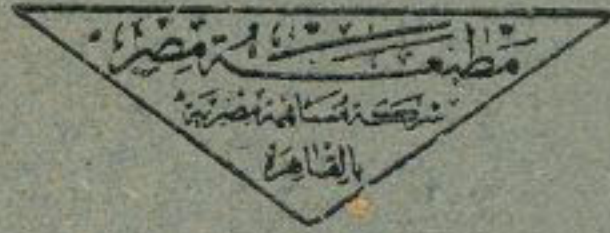 مطبعة مصر
شركة مساهمة مصرية
بالقاهرة